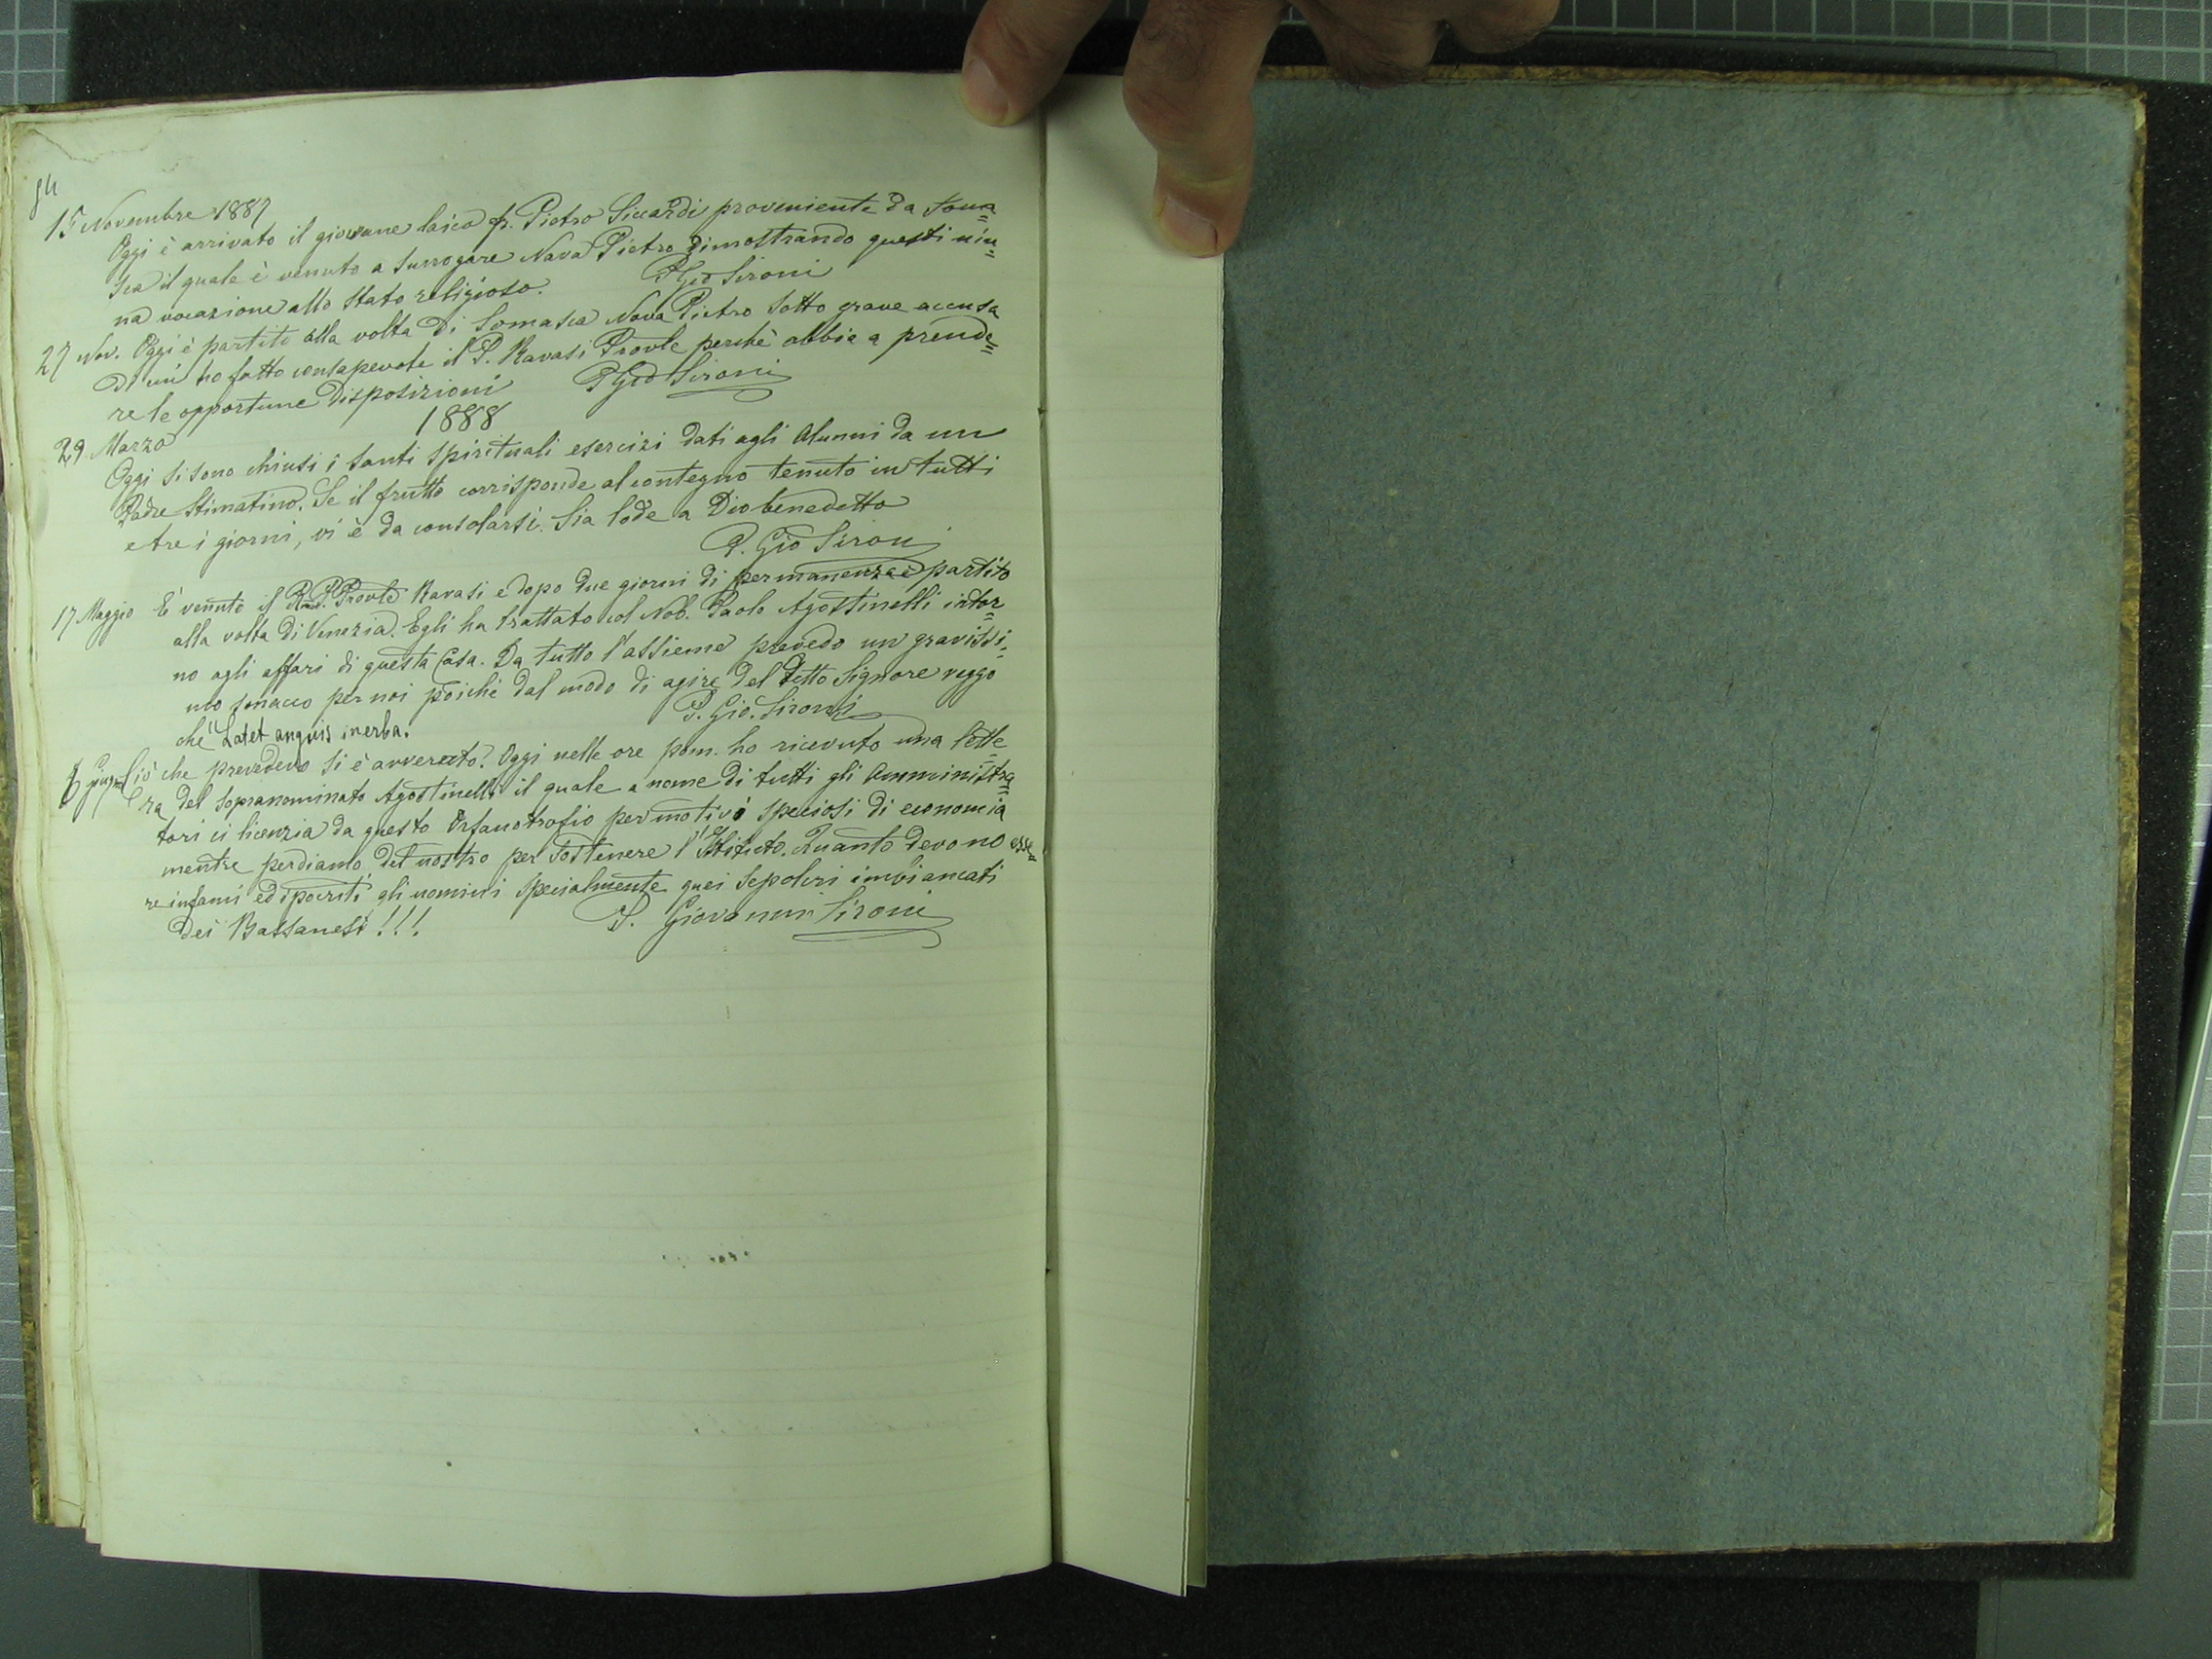 84
15 Novembre 1887
Oggi è arrivato il giovane laico fr. Pietro Siccardi proveniente da Soma=
sca il quale è venuto a surrogare Nava Pietro dimostrando questi niu=
na vocazione allo stato religioso. P Gio Sironi
27 Nov. Oggi è partito alla volta di Somasca Nava Pietro sotto grave accusa
di cui ho fatto consapevole il P. Ravasi Provle perchè abbia a prende=
re le opportune disposizioni P Gio Sironi
1888
29 Marzo
Oggi si sono chiusi i santi spirituali esercizi dati agli Alunni da un
Padre Stimatino. Se il frutto corrisponde al contegno tenuto in tutti
e tre i giorni, vi è da consolarsi. Sia lode a Dio benedetto
P. Gio Sironi
17 Maggio È venuto il P. Provle Ravasi e dopo due giorni di permanenza è partito
alla volta di Venezia. Egli ha trattato col Nob. Paolo Agostinelli intor=
no agli affari di questa Casa. Da tutto l'assieme prevedo un gravissi=
mo smacco per noi poichè dal modo di agire del detto Signore veggo
che "Latet anguis in erba. P. Gio. Sironi
6 giugno Ciò che prevedevo si è avverato! Oggi nelle ore pom. ho ricevuto una lette=
ra del sopranominato Agostinelli il quale a nome di tutti gli Amministra=
tori ci licenzia da questo Orfanotrofio per motivi speciosi di economia
mentre perdiamo del nostro per sostenere l'Istituto. Quanto devono esse=
re infami ed ipocriti gli uomini specialmente quei sepolcri imbiancati
dei Bassanesi!!! P. Giovanni Sironi